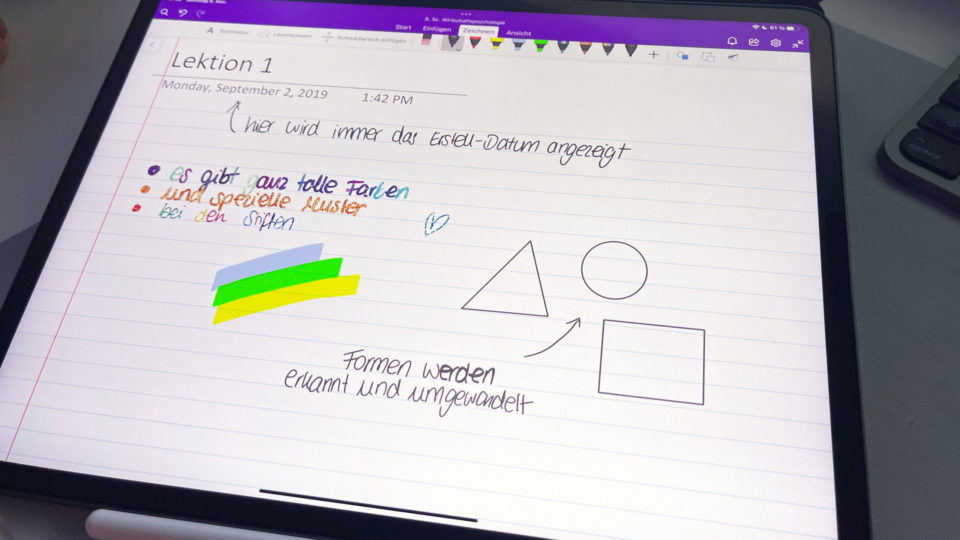 B. Sc. Wirtschaftspsychologie
61 %
Start Einfügen Zeichnen Ansicht
Textmodus Lassoauswahl Schreibbereich einfügen
Lektion 1
Monday, September 2, 2019 1:42 PM
hier wird immer das Erstell-Datum angezeigt
es gibt ganz tolle Farben
und spezielle Muster
bei den Stiften
Formen werden
erkannt und umgewandelt
control